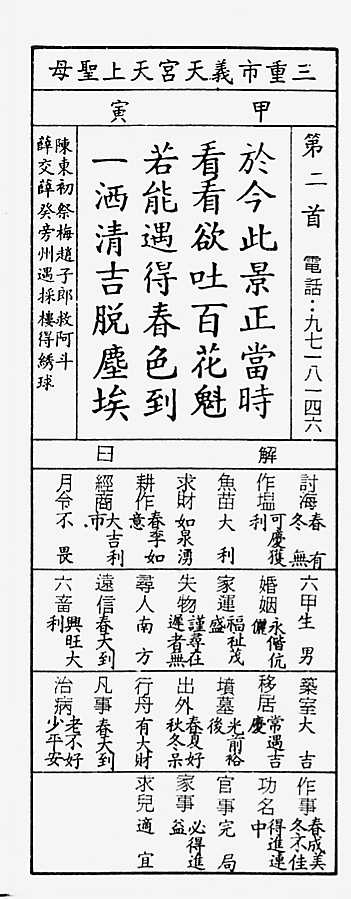 三重市義天宮天上聖母
甲寅
第二首 電話：九七一八一四六
於今此景正當時
看看欲吐百花魁
若能遇得春色到
一洒清吉脱塵埃
陳東初祭梅趙子郎救阿斗
薛交薛癸旁州遇採樓得綉球
解曰
討海 春有冬無
作塭 可慶獲利
魚苗 大利
求財 如泉湧
耕作 春季如意
經商 大吉利市
月令 不畏
六甲 生男
婚姻 永偕伉儷
家運 福祉茂盛
失物 謹尋在遲者無
尋人 南方
遠信 春天到
六畜 興旺大利
築室 大吉
移居 常遇吉慶
墳墓 光前裕後
出外 春夏好秋冬呆
行舟 有大財
凡事 春天到
治病 老不好少平安
作事 春成美冬不佳
功名 得進連中
官事 完局
家事 必得進益
求兒 適宜